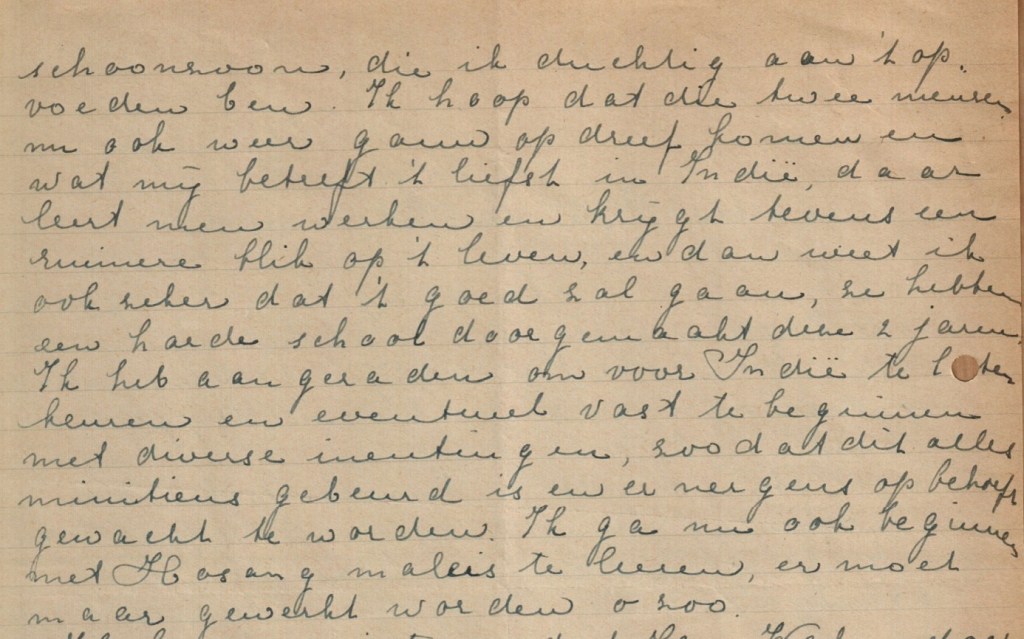 schoonzoon, die ik duchtig aan 't op.
voeden ben. Ik hoop dat die twee mensen
nu ook weer gauw op dreef komen en
wat mij betreft 't liefst in Indië, daar
leert men werken en krijgt tevens een
ruimere blik op 't leven, en dan weet ik
ook zeker dat 't goed zal gaan, ze hebben
een harde school doorgemaakt deze 2 jaren.
Ik heb aangeraden om voor Indië te laten
keuren en eventueel vast te beginnen
met diverse inentingen, zoodat dit alles
minitieus gebeurd is en er nergens op behoeft
gewacht te worden. Ik ga nu ook beginnen
met Hosang maleis te leeren, er moet
maar gewerkt worden o zoo.